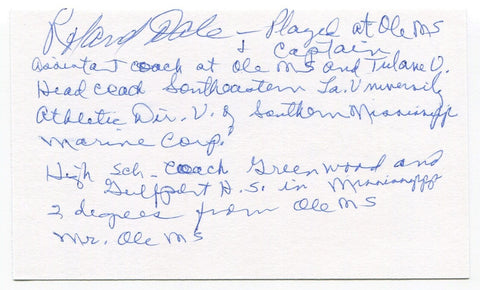 Roland Dale - Played at Ole MS
& Captain
Assistant coach at Ole MS and Tulane U.
Head coach Southeastern La. University
Athletic Dir. U. of Southern Mississipp
Marine Corp.
High Sch- coach Greenwood and
Gulfport H.S. in Mississipp
2 degrees from Ole MS
Mr. Ole MS